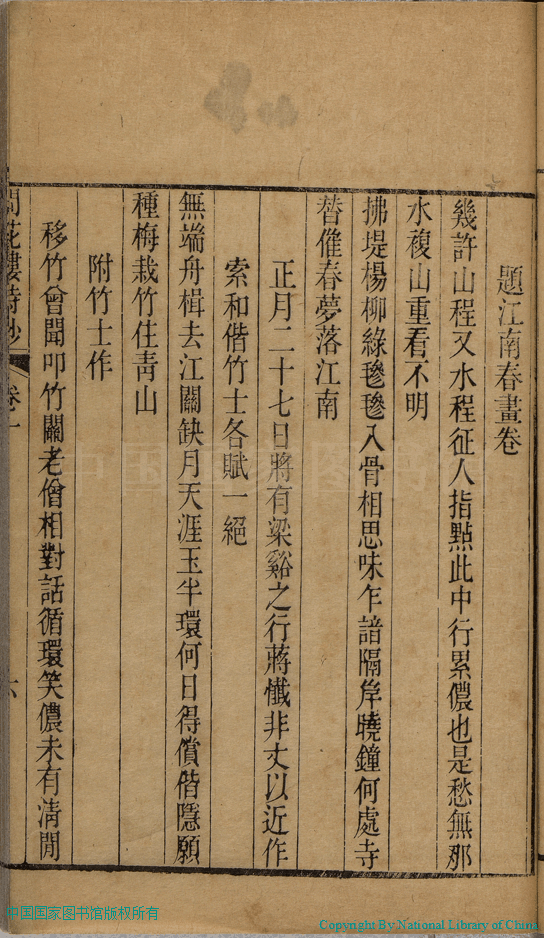 題江南春畫卷
幾許山程又水程征人指點此中行累儂也是愁無那
水複山重看不明
拂堤楊柳綠毿毿入骨相思味乍諳隔岸曉鐘何處寺
替催春夢落江南
正月二十七日將有梁谿之行蔣懺非丈以近作
索和偕竹士各賦一絕
無端舟楫去江關缺月天涯玉半環何日得償偕隱願
種梅栽竹住青山
附竹士作
移竹曾聞叩竹關老僧相對話循環笑儂未有清閒
問花樓詩鈔 卷一 六
中国国家图书馆版权所有
Copyright By National Library of China